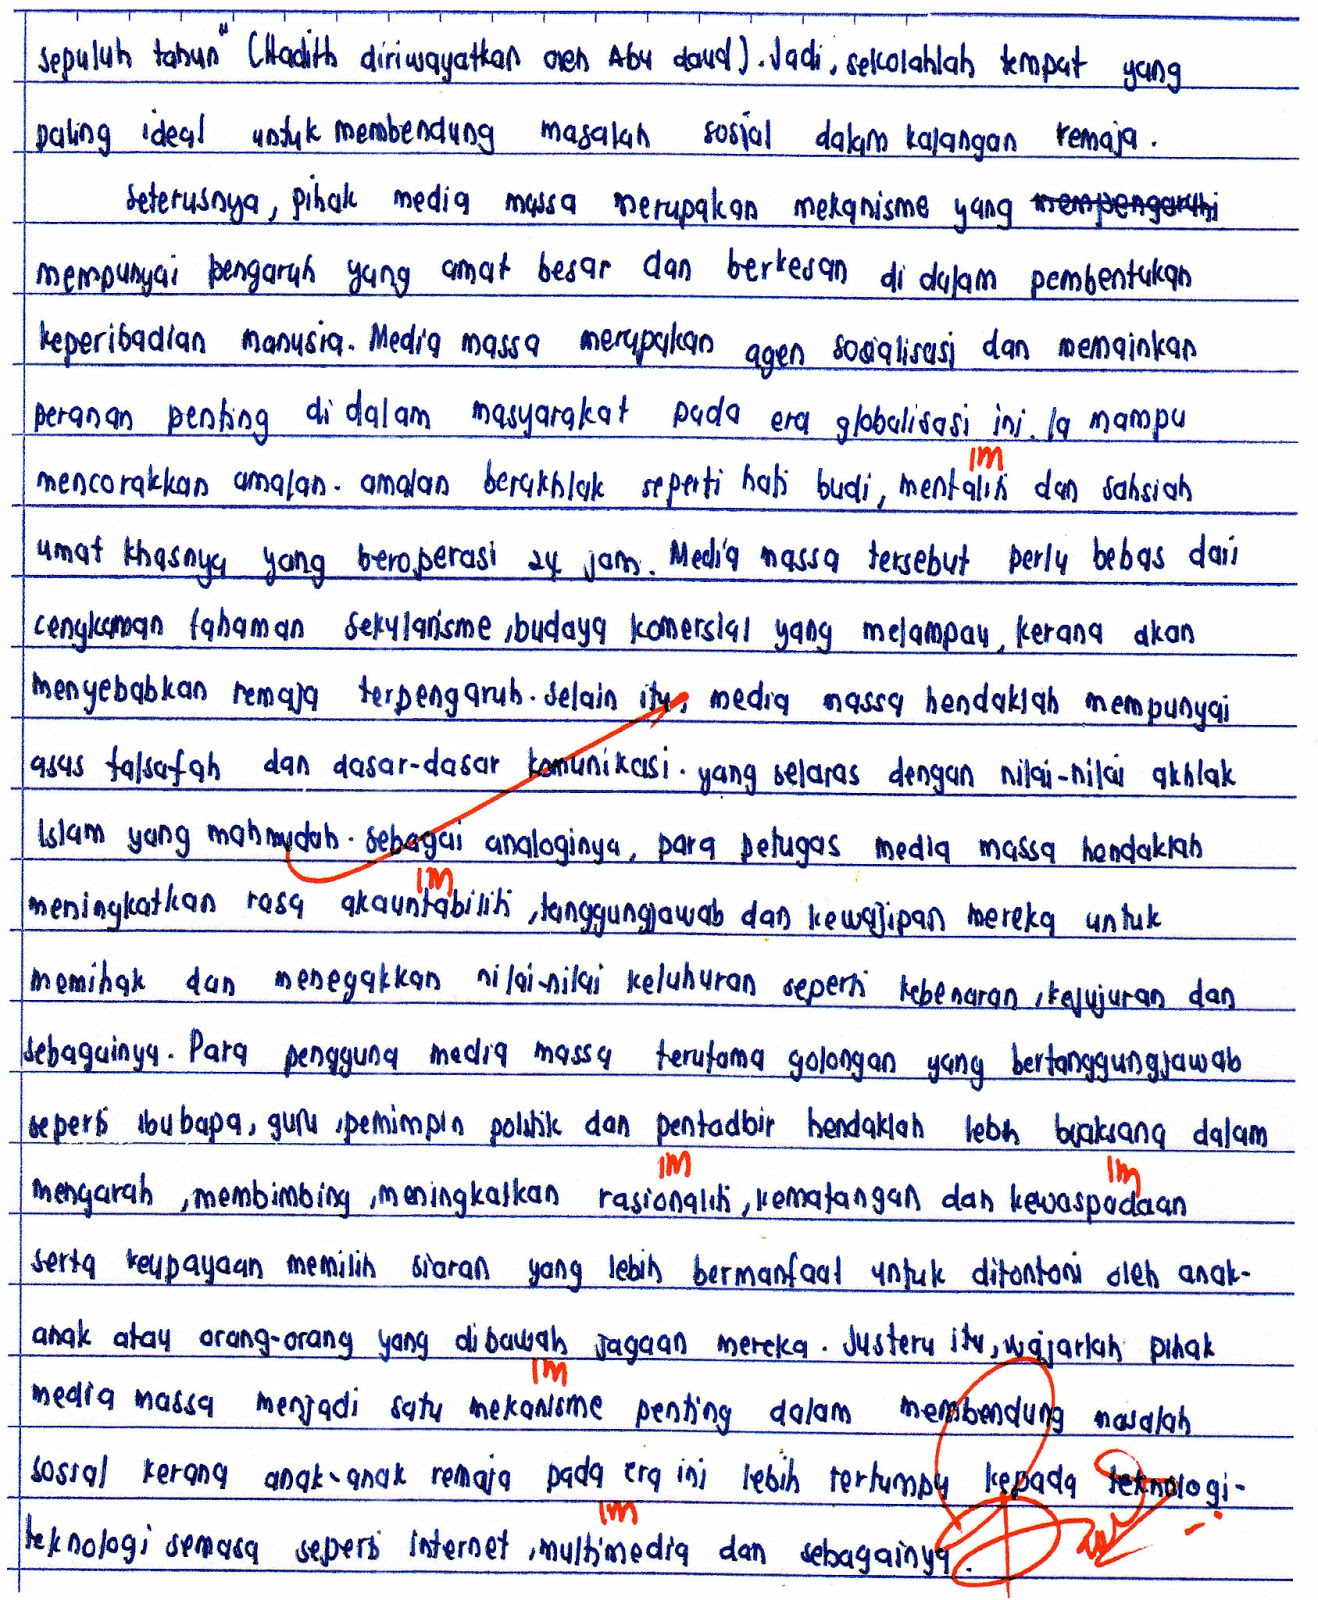 sepuluh tahun" (Hadith diriwayatkan oleh Abu daud). Jadi, sekolahlah tempat yang
paling ideal untuk membendung masalah sosial dalam kalangan remaja.
Seterusnya, pihak media massa merupakan mekanisme yang mempengaruhi
mempunyai pengaruh yang amat besar dan berkesan di dalam pembentukan
keperibadian manusia. Media massa merupakan agen sosialisasi dan memainkan
peranan penting di dalam masyarakat pada era globalisasi ini. Ia mampu
1m
mencorakkan amalan-amalan berakhlak seperti hati budi, mentaliti dan sahsiah
umat khasnya yang beroperasi 24 jam. Media massa tersebut perlu bebas dari
cengkaman fahaman sekularisme, budaya komersial yang melampau, kerana akan
menyebabkan remaja terpengaruh. Selain itu, media massa hendaklah mempunyai
asas falsafah dan dasar-dasar komunikasi. yang selaras dengan nilai-nilai akhlak
Islam yang mahmudah. Sebagai analoginya, para petugas media massa hendaklah
1m
meningkatkan rasa akauntabiliti, tanggungjawab dan kewajipan mereka untuk
memihak dan menegakkan nilai-nilai keluhuran seperti kebenaran, kejujuran dan
sebagainya. Para pengguna media massa terutama golongan yang bertanggungjawab
seperti ibu bapa, guru, pemimpin politik dan pentadbir hendaklah lebih bijaksana dalam
1m 1m
mengarah, membimbing, meningkatkan rasionaliti, kematangan dan kewaspadaan
serta keupayaan memilih siaran yang lebih bermanfaat untuk ditontoni oleh anak-
anak atau orang-orang yang dibawah jagaan mereka. Justeru itu, wajarlah pihak
1m
media massa menjadi satu mekanisme penting dalam membendung masalah
sosial kerana anak-anak remaja pada era ini lebih tertumpu kepada teknologi-
1m
teknologi semasa seperti internet, multimedia dan sebagainya.